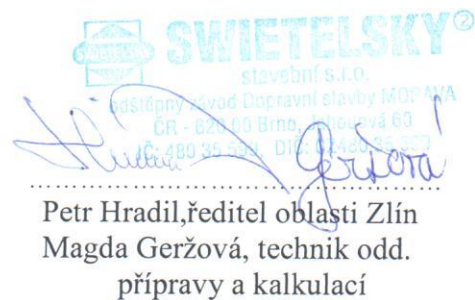 SWIETELSKY®
stavební s.r.o.
odštěpný závod Dopravní stavby MORAVA
ČR - 620 00 Brno, Jahodová 60
IČ: 480 35 599, DIČ: CZ480 35 599
Geržová
Petr Hradil,ředitel oblasti Zlín
Magda Geržová, technik odd.
přípravy a kalkulací